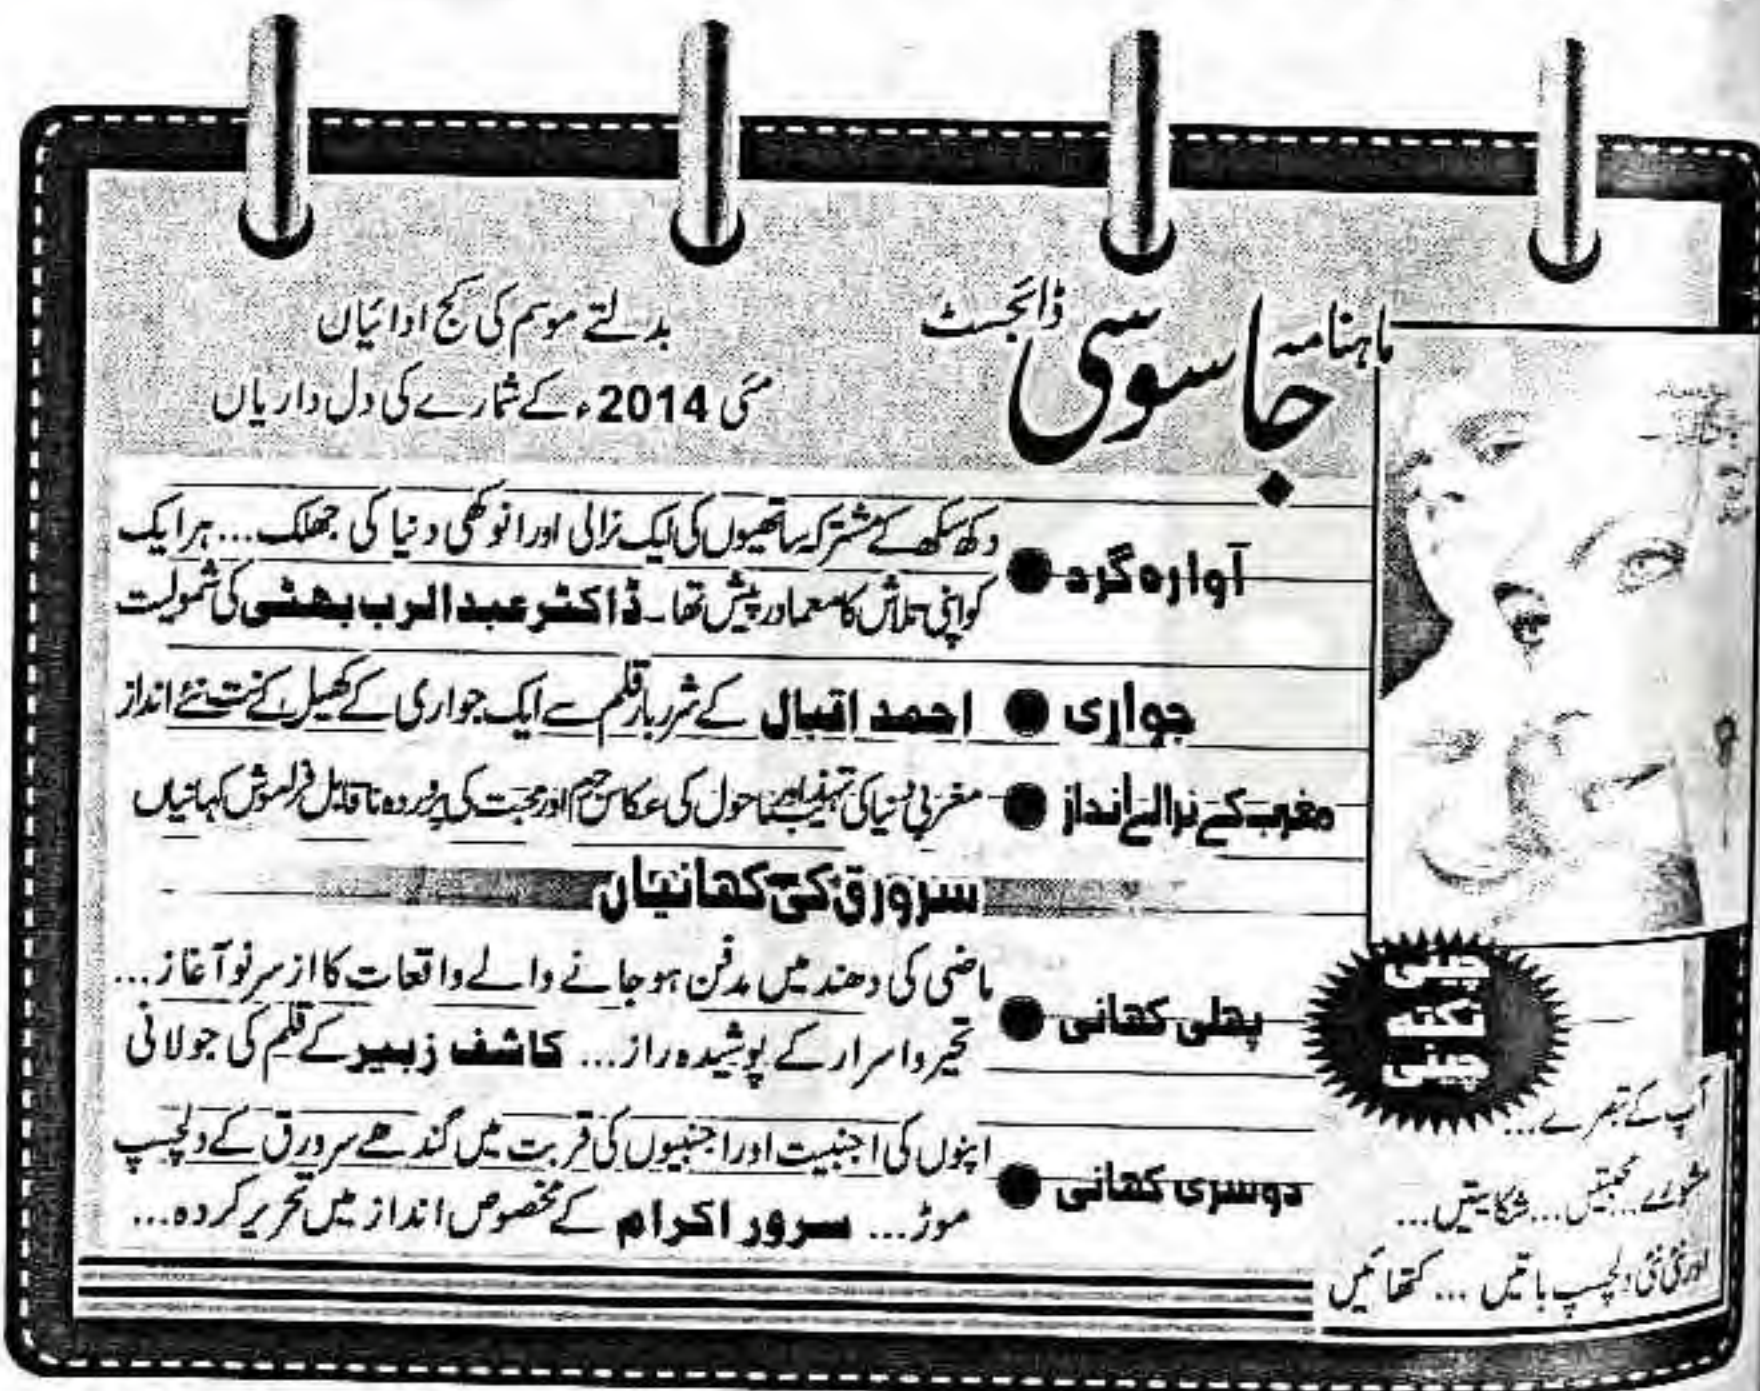 ماہنامہ جاسوسی ڈائجسٹ
بدلتے موسم کی کج ادائیاں
مئی 2014ء کے شمارے کی دل داریاں
آوارہ گرد ● دکھ سکھ کے مشترکہ ساتھیوں کی ایک نرالی اور انوکھی دنیا کی جھلک... ہر ایک
کو اپنی تلاش کا معما درپیش تھا۔ ڈاکٹر عبدالرب بھٹی کی شمولیت
جواری ● احمد اقبال کے شرربار قلم سے ایک جواری کے کھیل کے نت نئے انداز
مغرب کے نرالے انداز ● مغربی دنیا کی تہذیب اور ماحول کی عکاس جرم اور محبت کی پروردہ ناقابل فراموش کہانیاں
سرورق کی کہانیاں
پہلی کہانی ● ماضی کی دھند میں مدفن ہو جانے والے واقعات کا از سر نو آغاز...
تحیر و اسرار کے پوشیدہ راز... کاشف زبیر کے قلم کی جولانی
دوسری کہانی ● اپنوں کی اجنبیت اور اجنبیوں کی قربت میں گندھے سرورق کے دلچسپ
موڑ... سرور اکرام کے مخصوص انداز میں تحریر کردہ...
چینی
نکتہ
چینی
آپ کے تبصرے...
مشورے... محبتیں... شکایتیں...
اور نئی نئی دلچسپ باتیں... کتھائیں